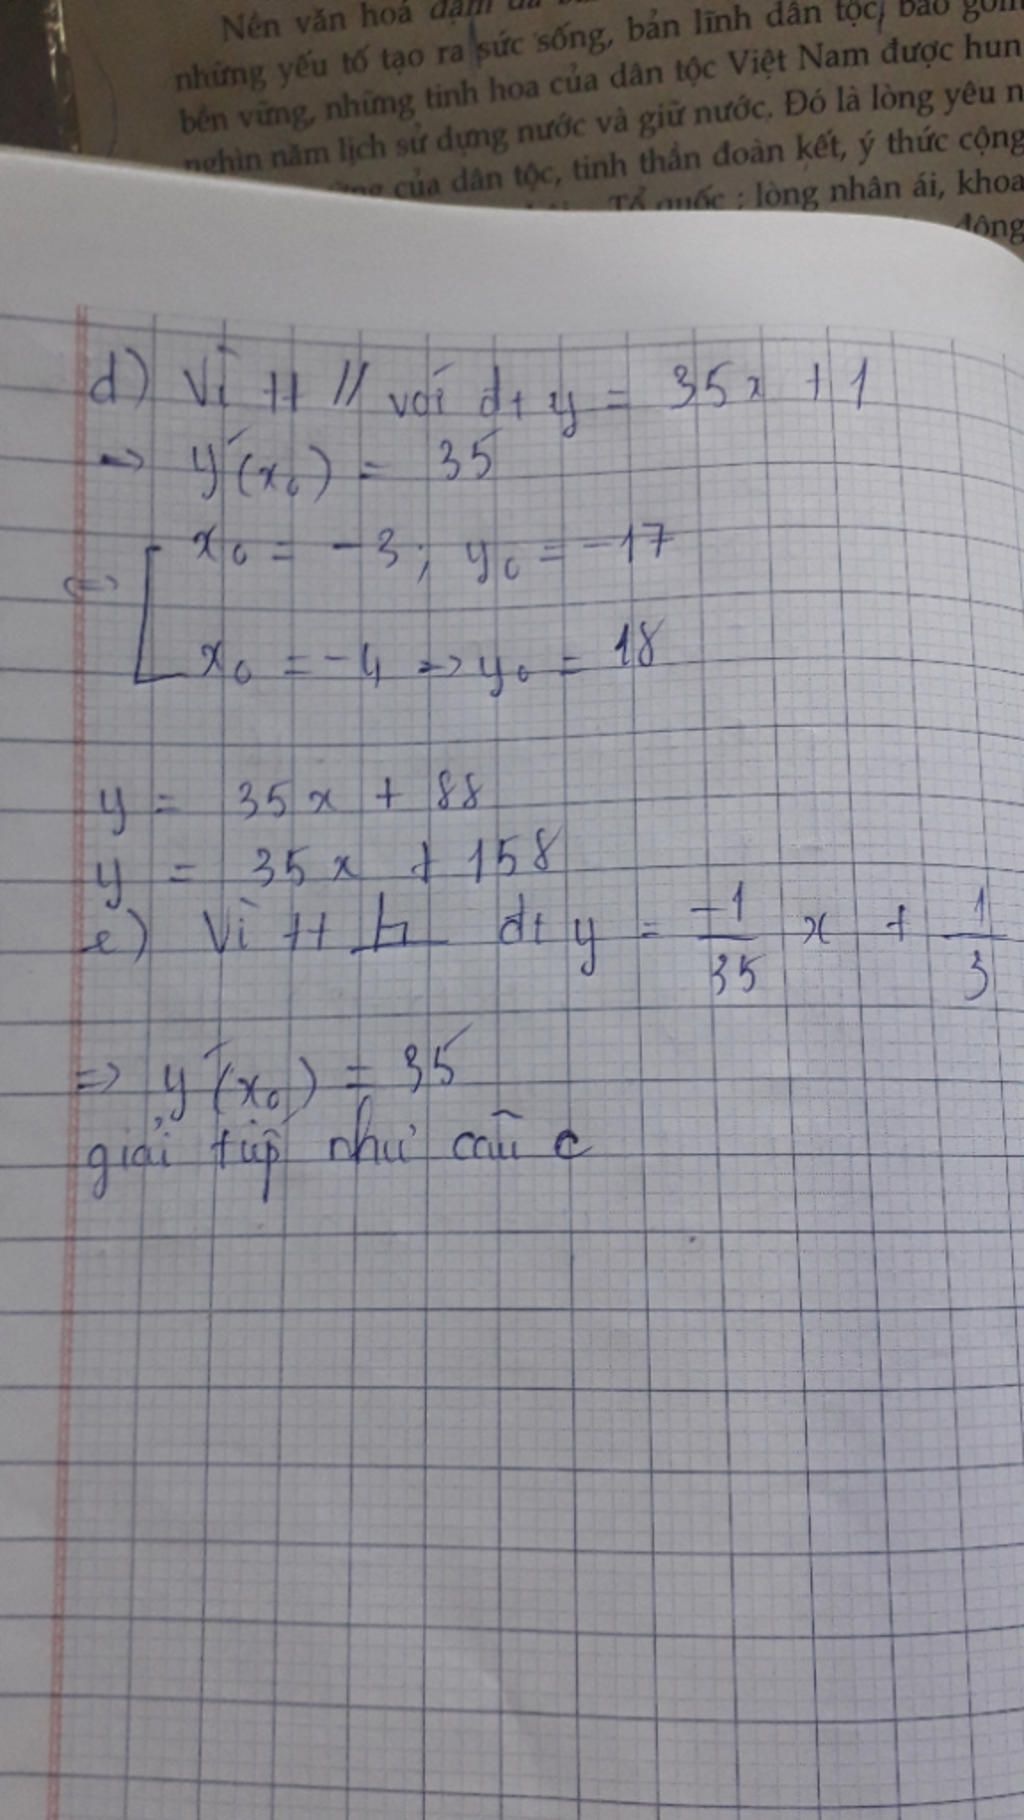 Nền văn hoá đậm đà
những yếu tố tạo ra sức sống, bản lĩnh dân tộc, bao gồm
bền vững, những tinh hoa của dân tộc Việt Nam được hun
nghìn năm lịch sử dựng nước và giữ nước. Đó là lòng yêu n
của dân tộc, tinh thần đoàn kết, ý thức cộng
Tổ quốc ; lòng nhân ái, khoa
động
d) Vì tt // với đt y = 35x + 1
=> y'(x₀) = 35
<=> [ x₀ = -3 ; y₀ = -17
x₀ = -4 => y₀ = 18
y = 35x + 88
y = 35x + 158
e) Vì tt ⊥ đt y = -1/35 x + 1/3
=> y'(x₀) = 35
giải tiếp như câu c